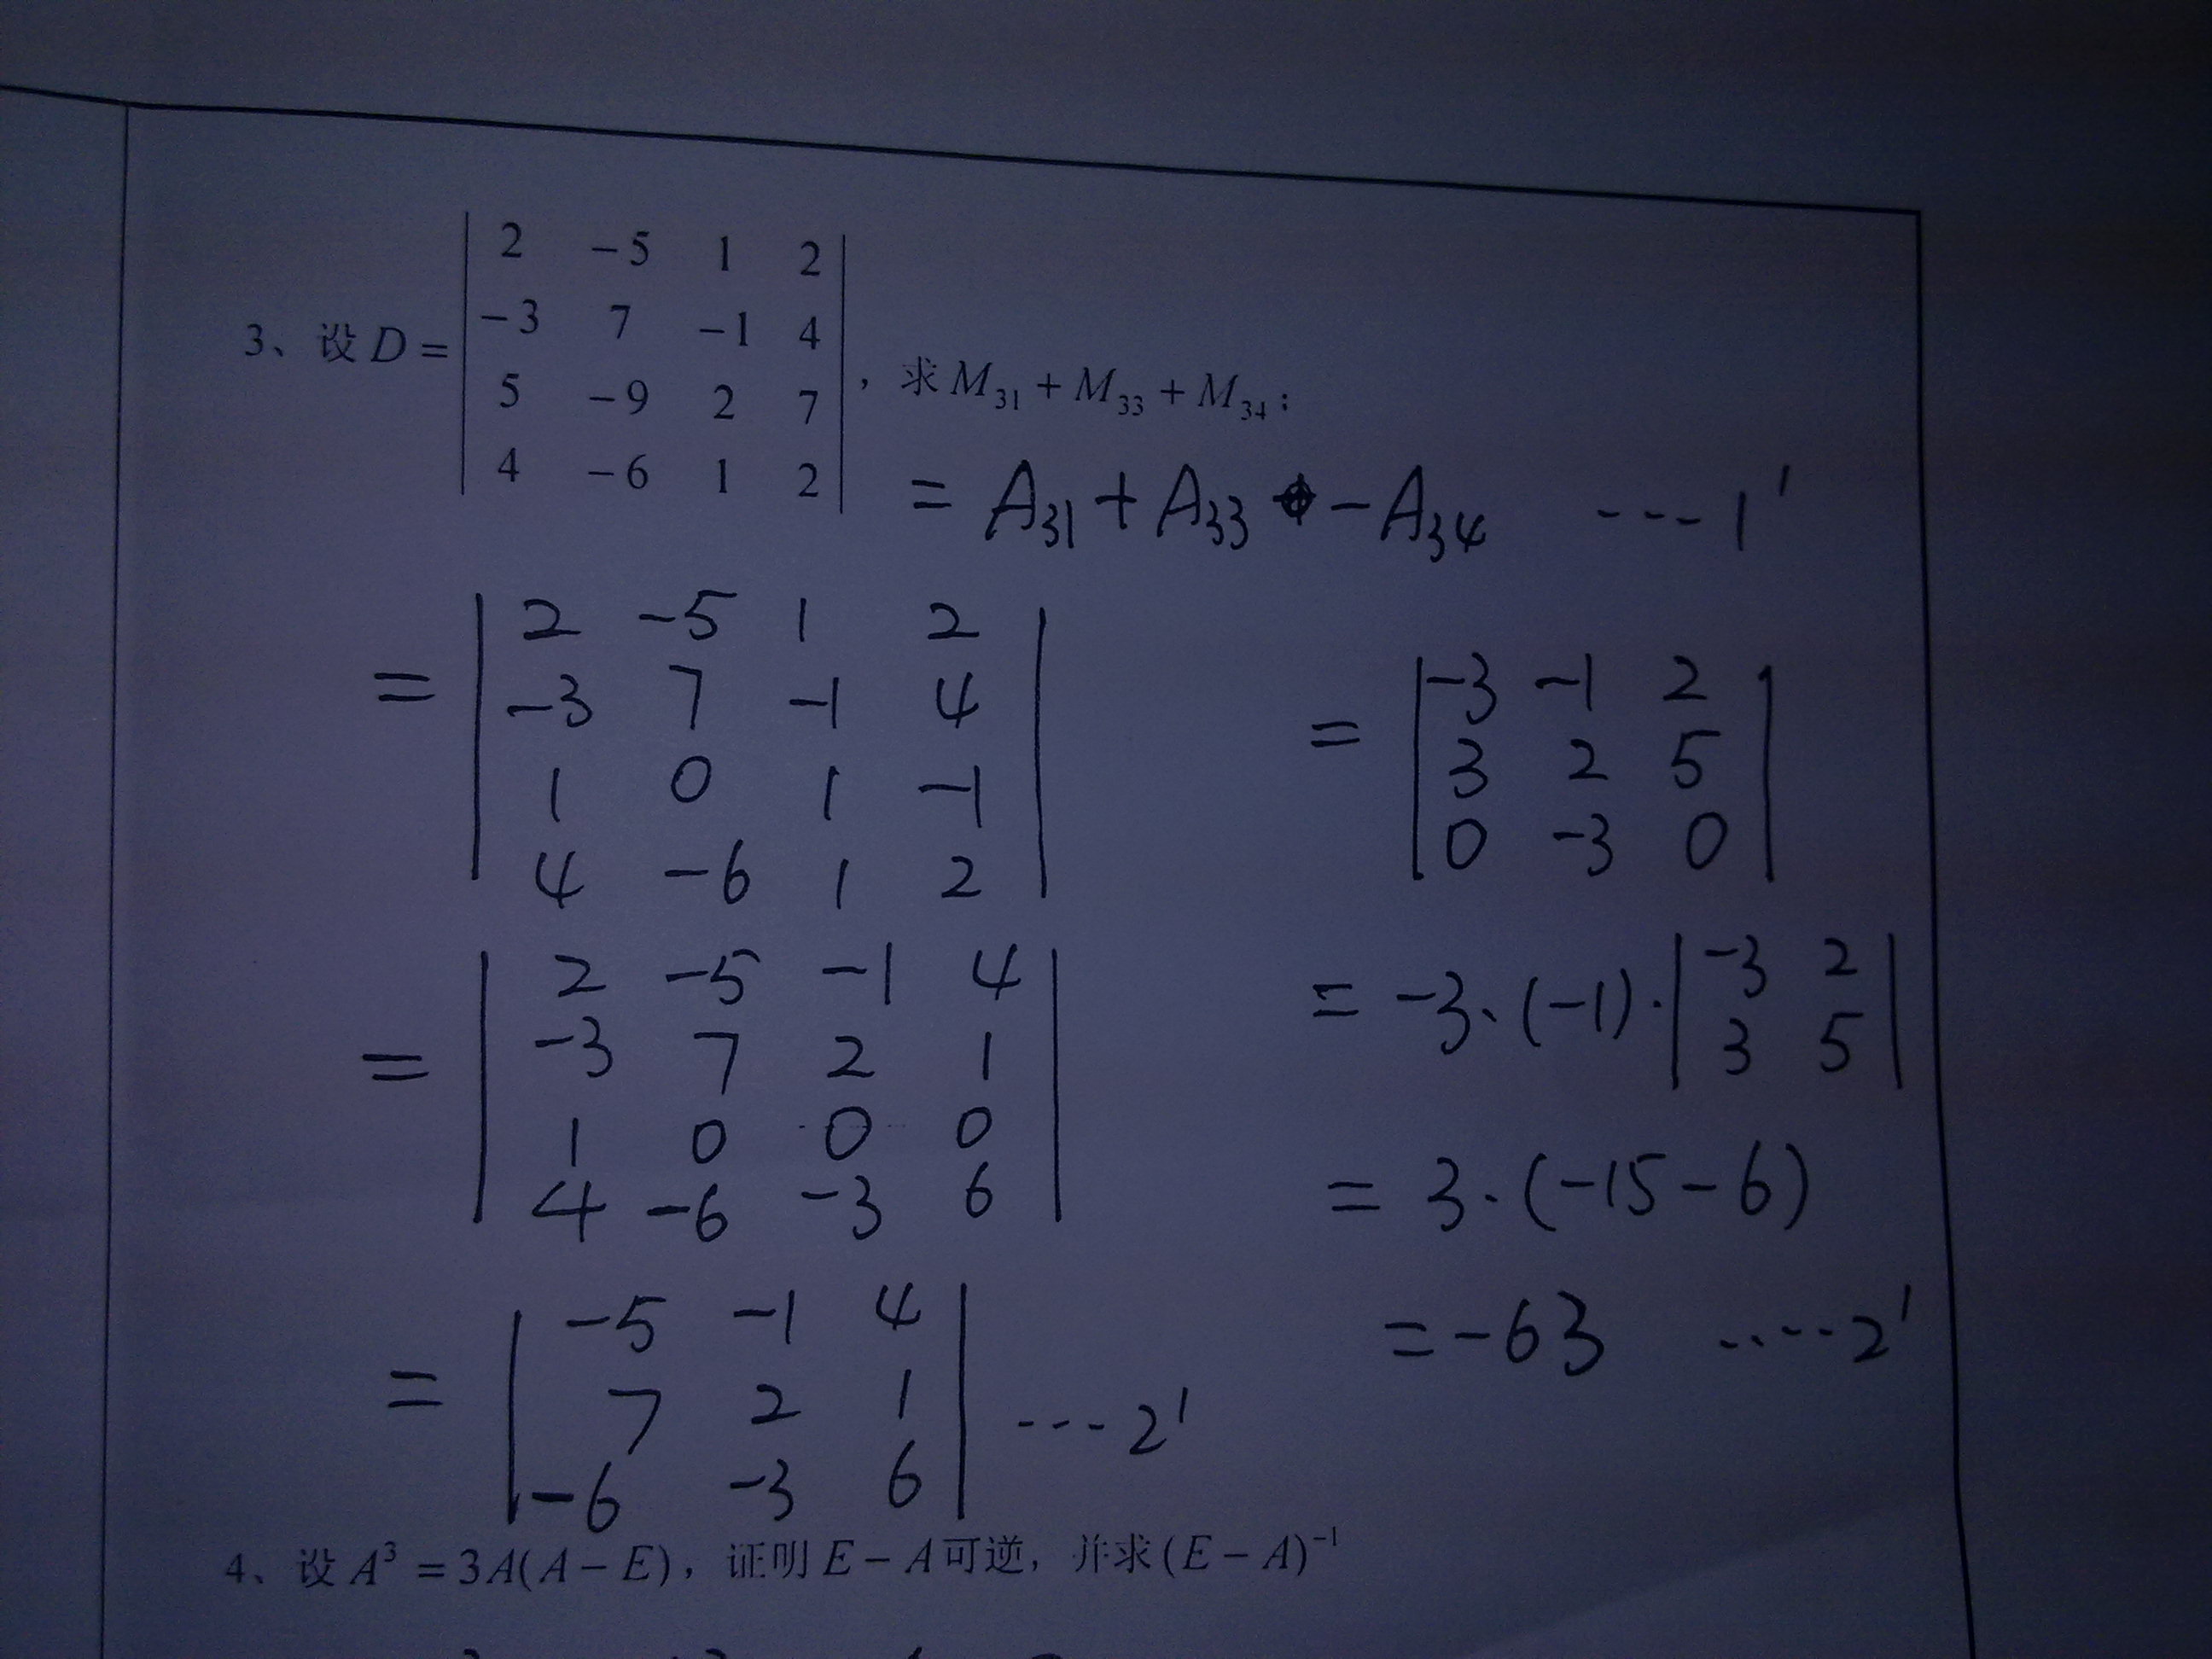 3、设 D = | 2 -5 1 2 |
| -3 7 -1 4 |
| 5 -9 2 7 |
| 4 -6 1 2 | ，求 M₃₁ + M₃₃ + M₃₄；
= A₃₁ + A₃₃ - A₃₄ ---1'
= | 2 -5 1 2 |
| -3 7 -1 4 |
| 1 0 1 -1 |
| 4 -6 1 2 |
= | 2 -5 -1 4 |
| -3 7 2 1 |
| 1 0 0 0 |
| 4 -6 -3 6 |
= | -5 -1 4 |
| 7 2 1 | ---2'
| -6 -3 6 |
= | -3 -1 2 |
| 3 2 5 |
| 0 -3 0 |
= -3·(-1)·| -3 2 |
| 3 5 |
= 3·(-15-6)
= -63 ----2'
4、设 A³ = 3A(A - E)，证明 E - A 可逆，并求 (E - A)⁻¹